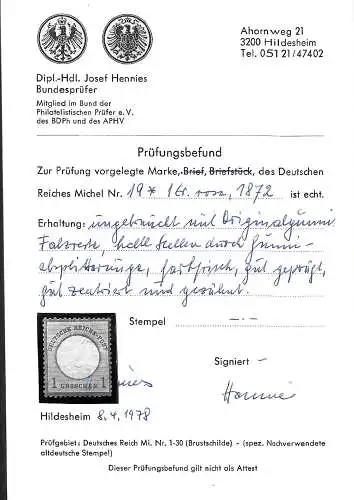 Ahornweg 21
3200 Hildesheim
Tel. 05121/47402
Dipl.-Hdl. Josef Hennies
Bundesprüfer
Mitglied im Bund der
Philatelistischen Prüfer e. V.
des BDPh und des APHV
Prüfungsbefund
Zur Prüfung vorgelegte Marke, Brief, Briefstück, des Deutschen
Reiches Michel Nr. 19* 1 Gr. rosa, 1872 ist echt.
Erhaltung: ungebraucht mit Originalgummi
Falzreste, helle Stellen durch Gummi-
absplitterungen, farbfrisch, gut geprägt,
gut zentriert und gezähnt.
Stempel —.—
DEUTSCHE REICHS-POST
1 GROSCHEN 1
Signiert –
Hennies
Hildesheim 8.4.1978
Prüfgebiet: Deutsches Reich Mi. Nr. 1-30 (Brustschilde) - (spez. Nachverwendete
altdeutsche Stempel)
Dieser Prüfungsbefund gilt nicht als Attest